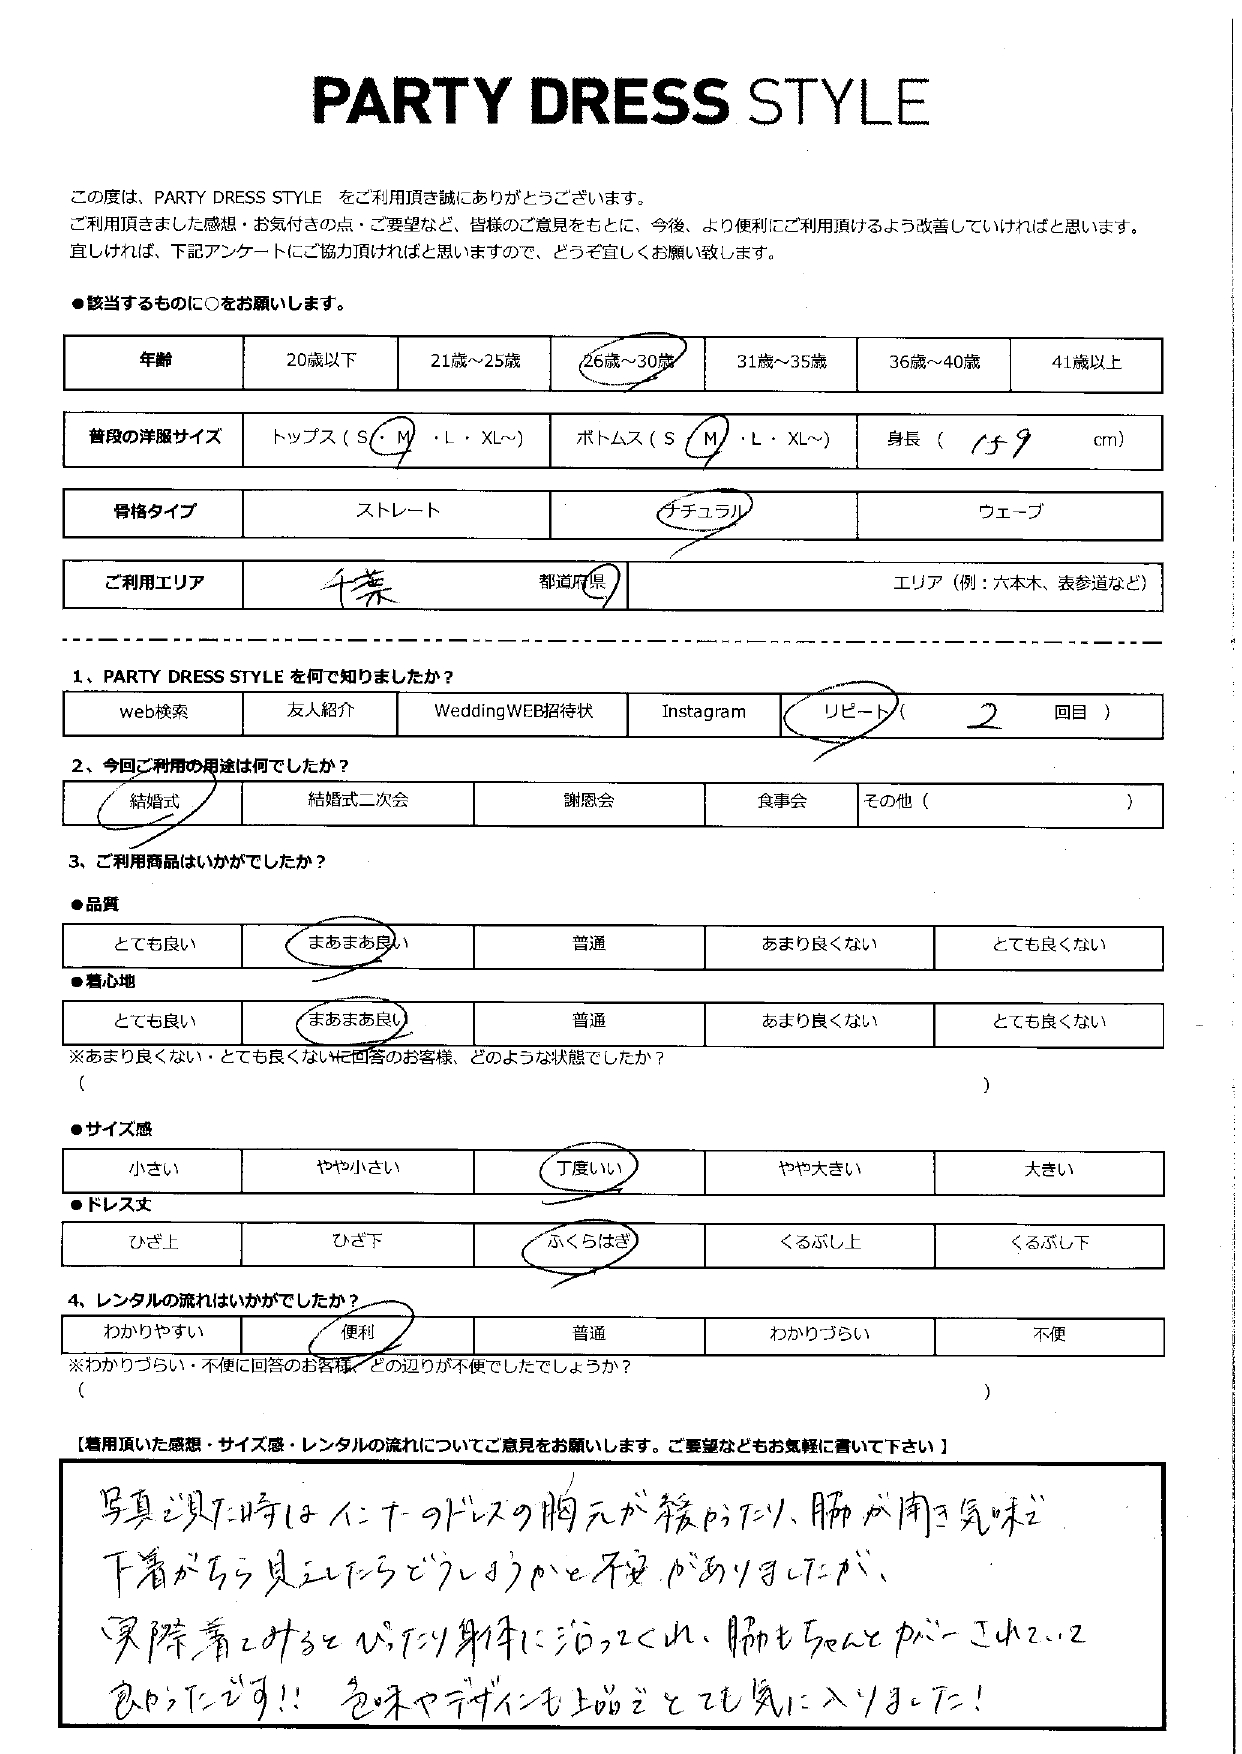 PARTY DRESS STYLE
この度は、PARTY DRESS STYLE をご利用頂き誠にありがとうございます。
ご利用頂きました感想・お気付きの点・ご要望など、皆様のご意見をもとに、今後、より便利にご利用頂けるよう改善していければと思います。
宜しければ、下記アンケートにご協力頂ければと思いますので、どうぞ宜しくお願い致します。
●該当するものに○をお願いします。
年齢 20歳以下 21歳～25歳 26歳～30歳 31歳～35歳 36歳～40歳 41歳以上
普段の洋服サイズ トップス ( S ・ M ・L ・ XL～) ボトムス ( S M ・L ・ XL～) 身長 ( 159 cm)
骨格タイプ ストレート ナチュラル ウェーブ
ご利用エリア 千葉 都道府県 エリア (例：六本木、表参道など)
1、PARTY DRESS STYLE を何で知りましたか？
web検索 友人紹介 WeddingWEB招待状 Instagram リピート ( 2 回目 )
2、今回ご利用の用途は何でしたか？
結婚式 結婚式二次会 謝恩会 食事会 その他 ( )
3、ご利用商品はいかがでしたか？
●品質
とても良い まあまあ良い 普通 あまり良くない とても良くない
●着心地
とても良い まあまあ良い 普通 あまり良くない とても良くない
※あまり良くない・とても良くないに回答のお客様、どのような状態でしたか？
( )
●サイズ感
小さい やや小さい 丁度いい やや大きい 大きい
●ドレス丈
ひざ上 ひざ下 ふくらはぎ くるぶし上 くるぶし下
4、レンタルの流れはいかがでしたか？
わかりやすい 便利 普通 わかりづらい 不便
※わかりづらい・不便に回答のお客様、どの辺りが不便でしたでしょうか？
( )
【着用頂いた感想・サイズ感・レンタルの流れについてご意見をお願いします。ご要望などもお気軽に書いて下さい】
写真で見た時はインナーのドレスの胸元が緩かったり、脇が開き気味で
下着がちら見えしたらどうしようかと不安がありましたが、
実際着てみるとぴったり身体に沿ってくれ、脇もちゃんとカバーされていて
良かったです!! 色味やデザインも上品でとても気に入りました!